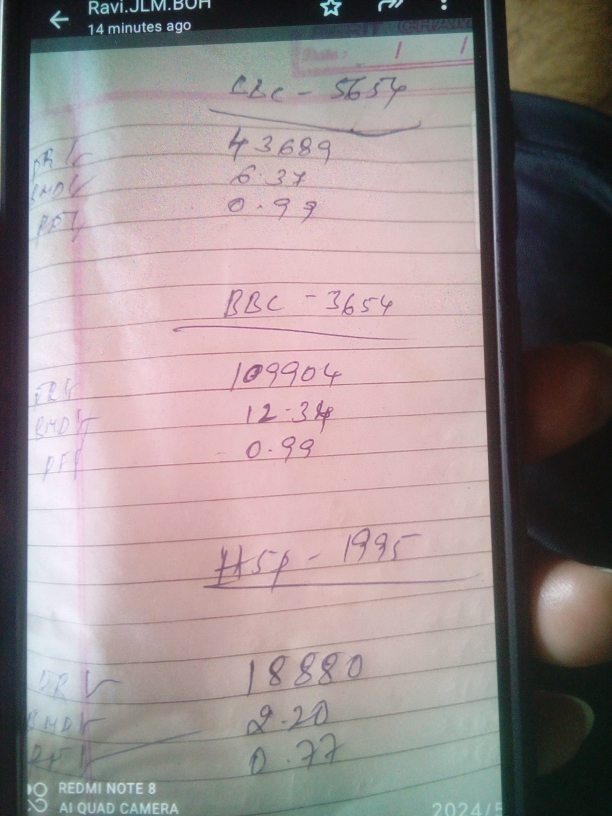 Ravi.JLM.BOH
14 minutes ago
Date: 1 1
CBC - 5654
43689
BMD 6.37
PF 0.99
BBC - 3654
109904
BMD 12.34
PF 0.99
HSP - 1995
18880
BMD 2.20
PF 0.77
REDMI NOTE 8
AI QUAD CAMERA
2024/5